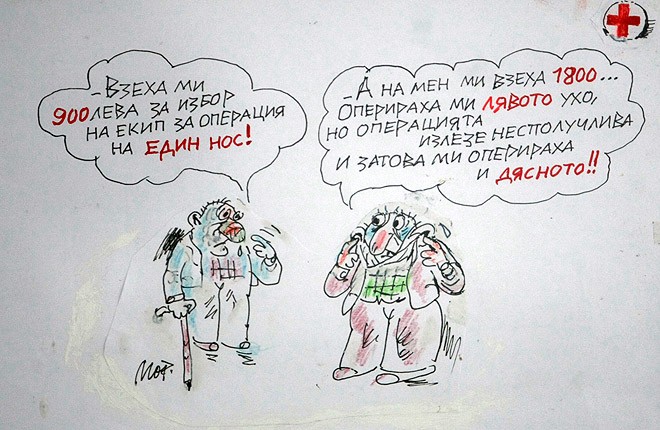 - ВЗЕХА МИ
900 ЛЕВА ЗА ИЗБОР
НА ЕКИП ЗА ОПЕРАЦИЯ
НА ЕДИН НОС!
- А НА МЕН МИ ВЗЕХА 1800...
ОПЕРИРАХА МИ ЛЯВОТО УХО,
НО ОПЕРАЦИЯТА
ИЗЛЕЗЕ НЕСПОЛУЧЛИВА
И ЗАТОВА МИ ОПЕРИРАХА
И ДЯСНОТО!!